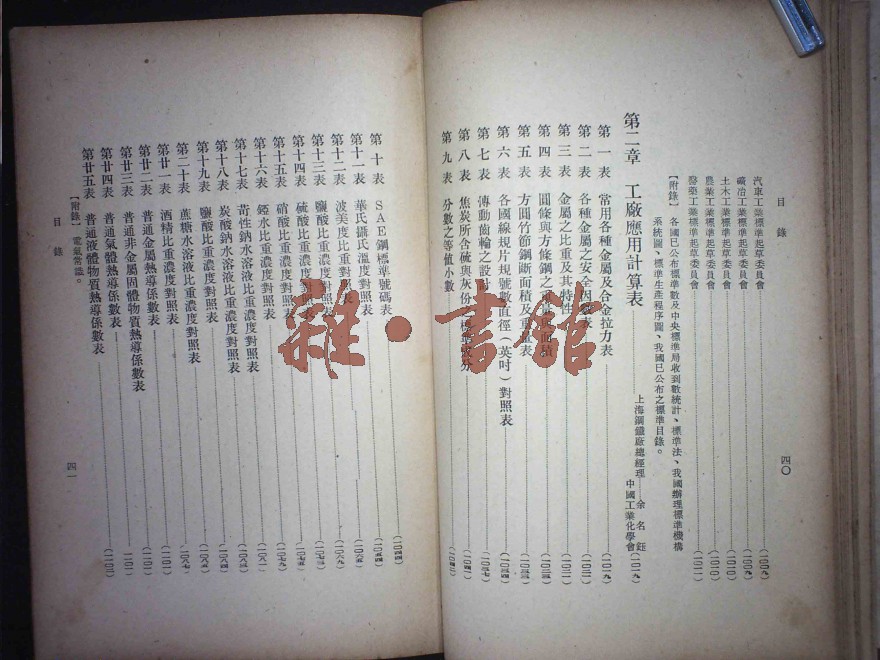 目錄
四〇
汽車工業標準起草委員會
礦冶工業標準起草委員會
土木工業標準起草委員會
農業工業標準起草委員會
醫藥工業標準起草委員會
【附錄】各國已公布標準數及中央標準局收到數統計、標準法、我國辦理標準機構
系統圖、標準生產程序圖、我國已公布之標準目錄。
第二章 工廠應用計算表
上海鋼鐵廠總經理 余名鈺
中國工業化學會(一〇一九)
第一表 常用各種金屬及合金拉力表(一〇一九)
第二表 各種金屬之安全因數表
第三表 金屬之比重及其特性
第四表 圓條與方條鋼之
第五表 方圓竹節鋼斷面積及重量表
第六表 各國線規片規號數直徑(英吋)對照表
第七表 傳動齒輪之設計
第八表 焦炭所含硫與灰份
第九表 分數之等值小數
第十表 SAE鋼標準號碼表
第十一表 華氏攝氏溫度對照表
第十二表 波美度比重對照表
第十三表 鹽酸比重濃度對照表
第十四表 硫酸比重濃度對照表
第十五表 硝酸比重濃度對照表
第十六表 水比重濃度對照表
第十七表 苛性鈉水溶液比重濃度對照表
第十八表 炭酸鈉水溶液比重濃度對照表
第十九表 鹽酸比重濃度對照表
第二十表 蔗糖水溶液比重濃度對照表
第廿一表 酒精比重濃度對照表
第廿二表 普通金屬熱導係數表
第廿三表 普通非金屬固體物質熱導係數表
第廿四表 普通氣體熱導係數表
第廿五表 普通液體物質熱導係數表
【附錄】電氣常識。
目錄
四一
雜·書館